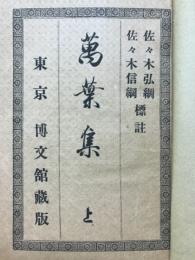 佐々木弘綱
佐々木信綱
標註
萬葉集 上
東京 博文館藏版